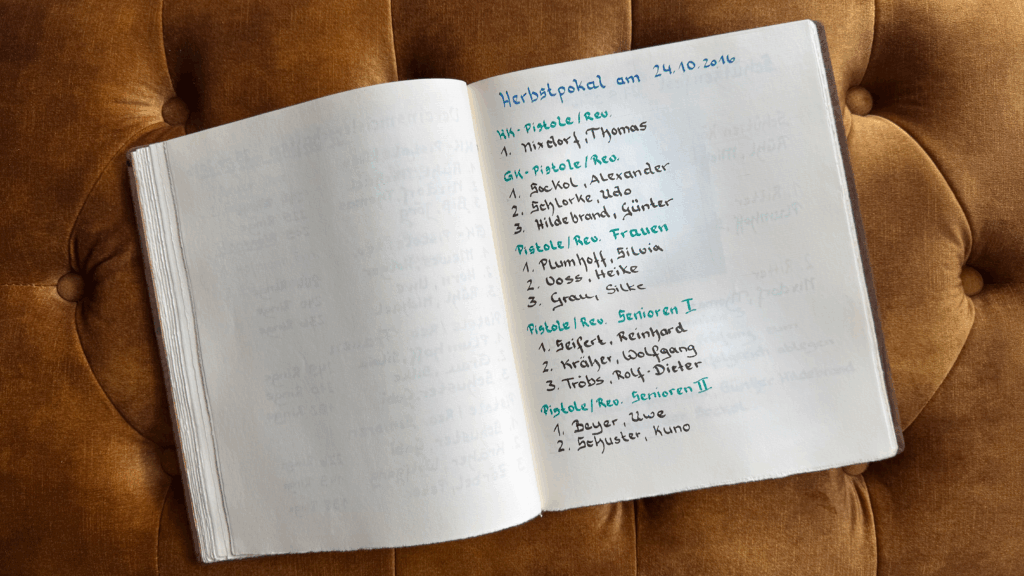 Herbstpokal am 24.10.2016
KK-Pistole/Rev.
1. Nixdorf, Thomas
GK-Pistole/Rev.
1. Sockol, Alexander
2. Schlorke, Udo
3. Hildebrand, Günter
Pistole/Rev. Frauen
1. Plumhoff, Silvia
2. Voss, Heike
3. Grau, Silke
Pistole/Rev. Senioren I
1. Seifert, Reinhard
2. Kräher, Wolfgang
3. Tröbs, Rolf-Dieter
Pistole/Rev. Senioren II
1. Beyer, Uwe
2. Schuster, Kuno